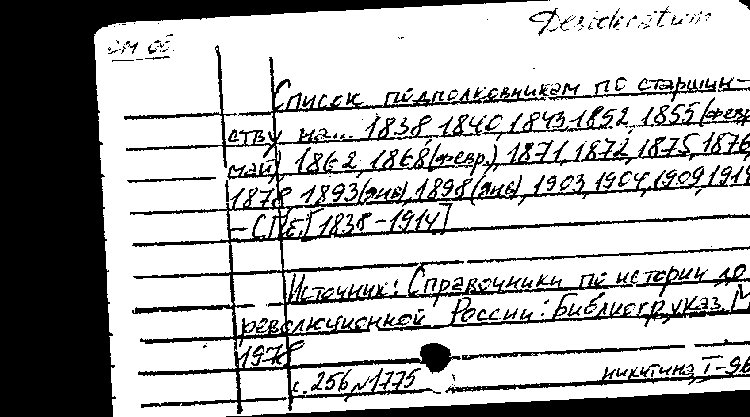 Desideratum
ОМ 06.
Список подполковникам по старшин-
ству на... 1838, 1840, 1843, 1852, 1855 (февр.
май), 1862, 1868 (февр.), 1871, 1872, 1875, 1876
1878, 1893 (янв), 1898 (янв), 1903, 1904, 1909, 1914
- СПб, [1838-1914]
Источник: Справочники по истории до
революционной России: Библиогр. указ. М
1978
с. 256, №1775
никитина, I-96